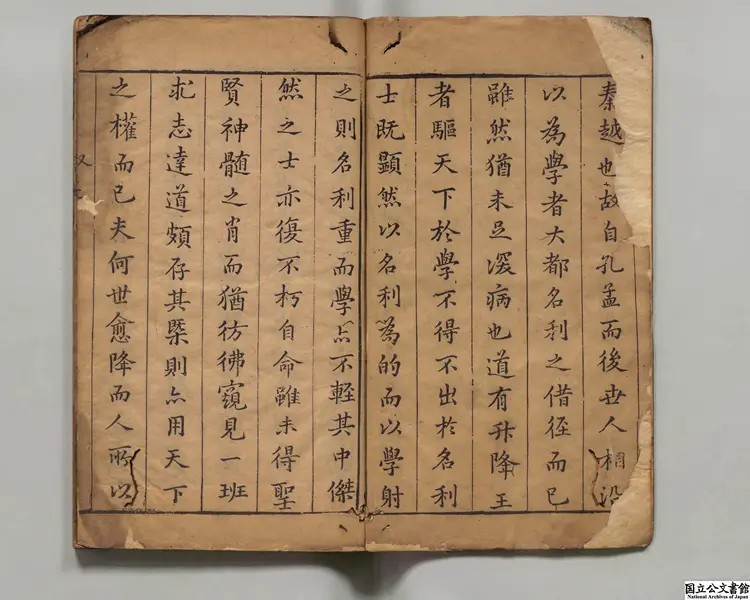 秦越也故自孔孟而後世人相沿
以為學者大都名利之借徑而已
雖然猶未足深病也道有升降王
者驅天下於學不得不出於名利
士既顯然以名利為的而以學射
之則名利重而學亦不輕其中傑
然之士亦復不朽自命雖未得聖
賢神髓之肖而猶彷彿窺見一班
求志達道頗存其槩則亦用天下
之權而已夫何世愈降而人所以
国立公文書館
National Archives of Japan